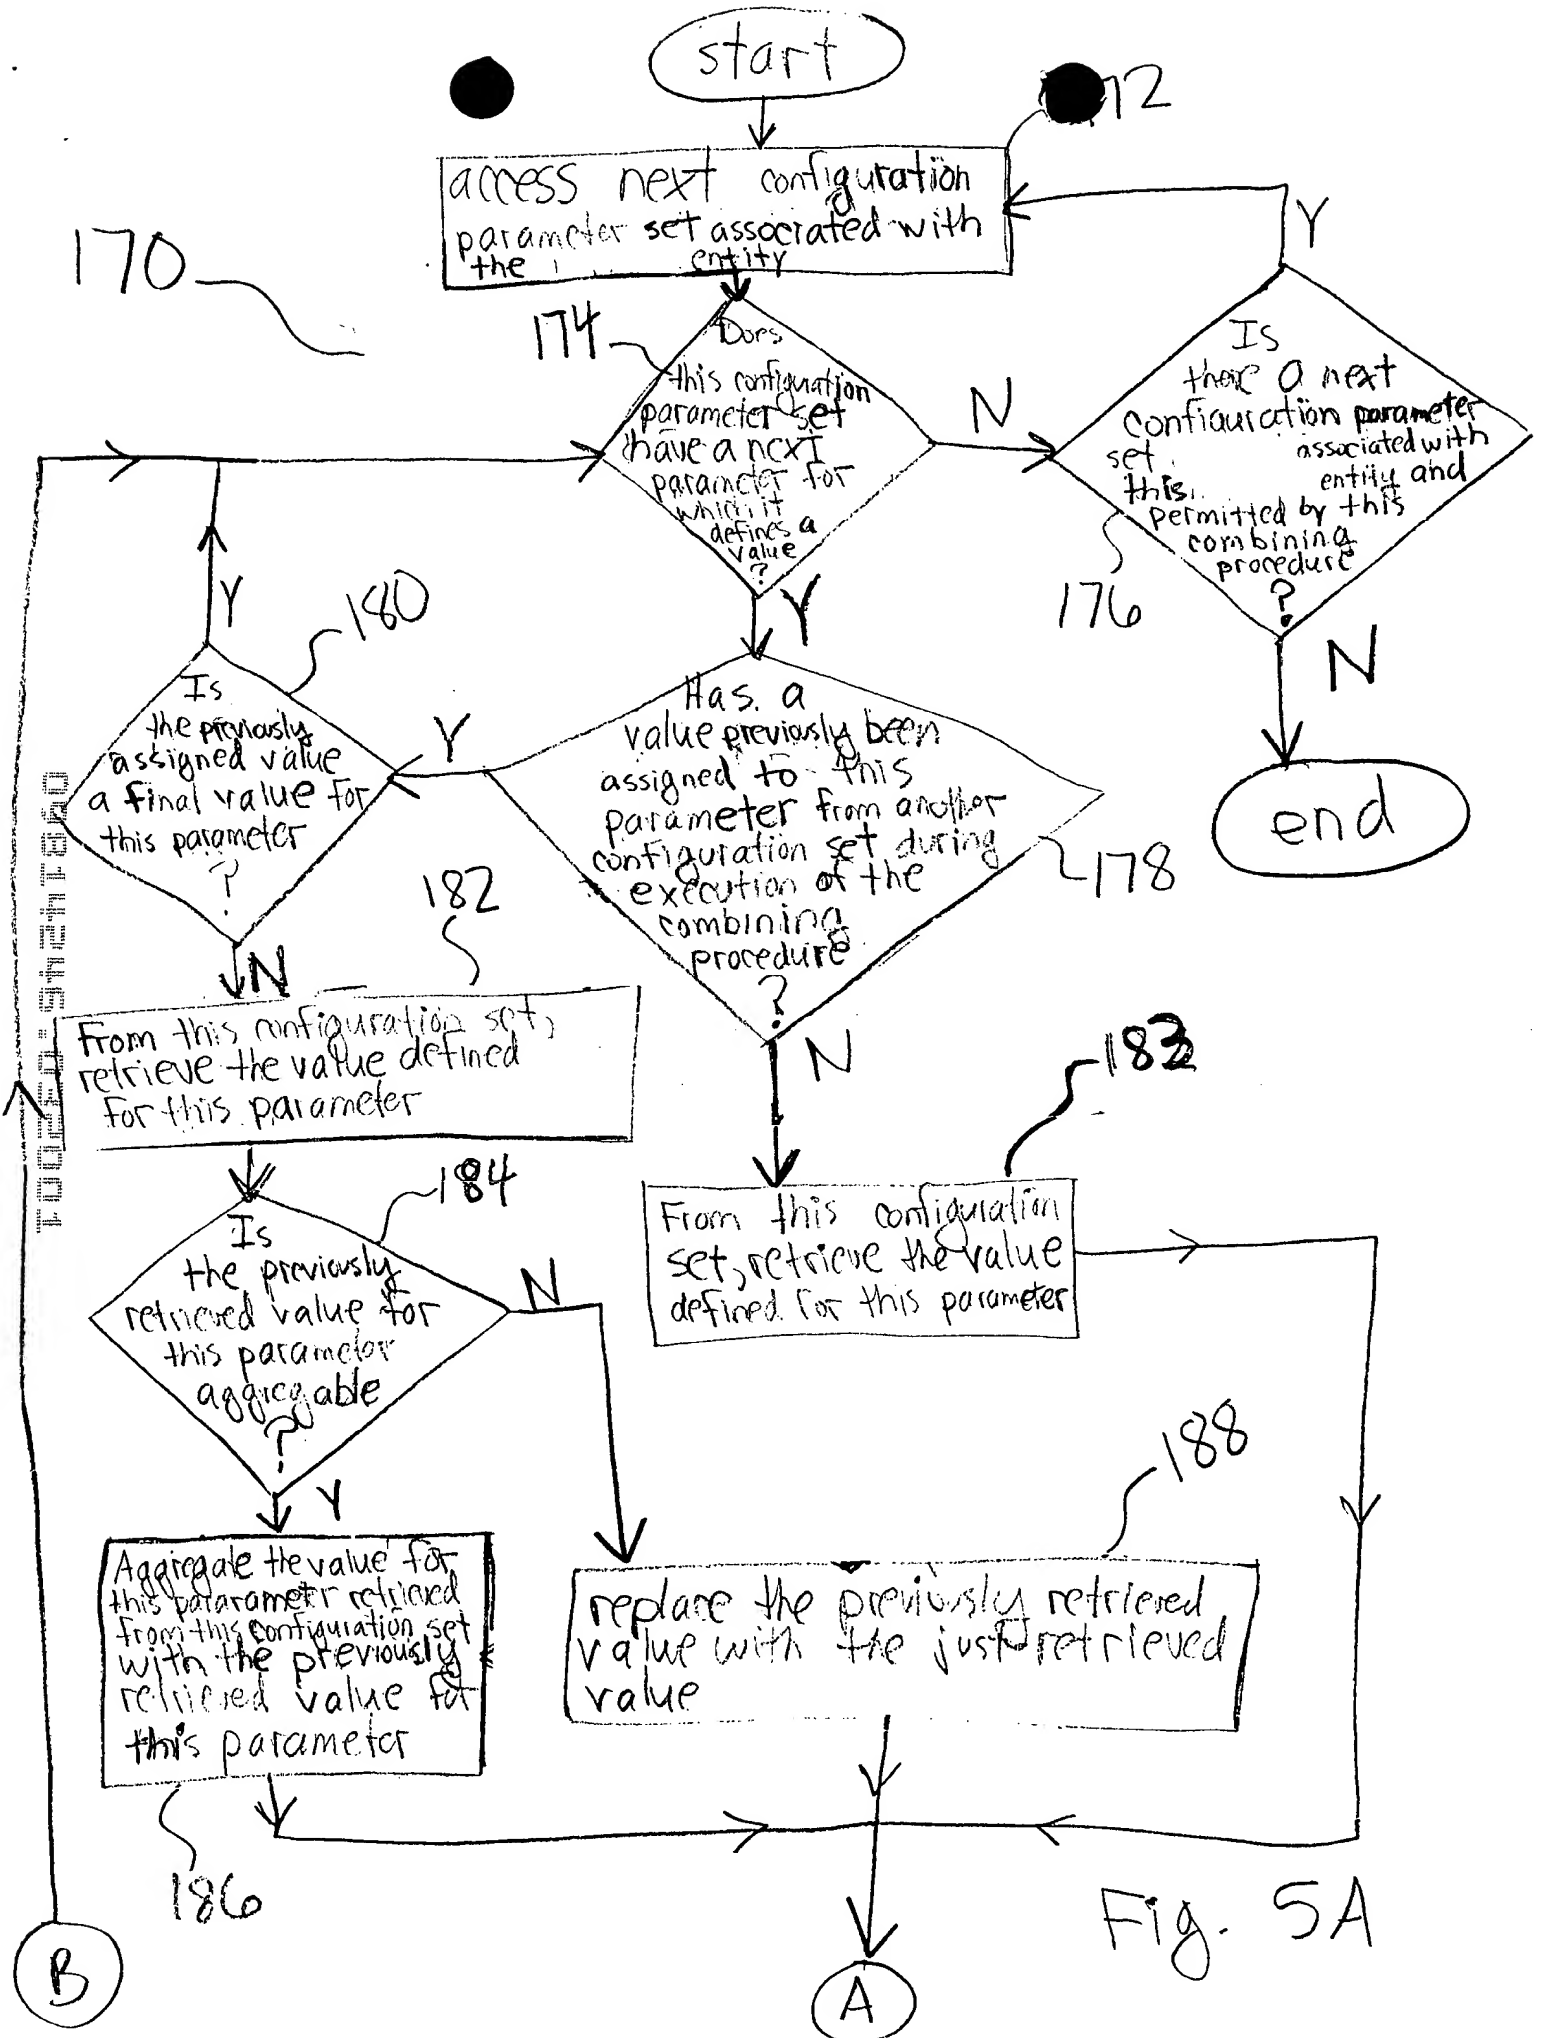 start
172
access next configuration
parameter set associated with
the entity
170
174
Does
this configuration
parameter set
have a next
parameter for
which it
defines a
value
?
N
Y
Y
Is
there a next
configuration parameter
set associated with
this entity and
permitted by this
combining
procedure
?
176
N
end
180
Y
Is
the previously
assigned value
a final value for
this parameter
?
N
Y
Has a
value previously been
assigned to this
parameter from another
configuration set during
execution of the
combining
procedure
?
178
N
182
From this configuration set,
retrieve the value defined
for this parameter
183
From this configuration
set, retrieve the value
defined for this parameter
184
Is
the previously
retrieved value for
this parameter
aggregable
?
N
Y
Aggregate the value for
this pararameter retrieved
from this configuration set
with the previously
retrieved value for
this parameter
186
188
replace the previously retrieved
value with the just retrieved
value
B
A
Fig. 5A